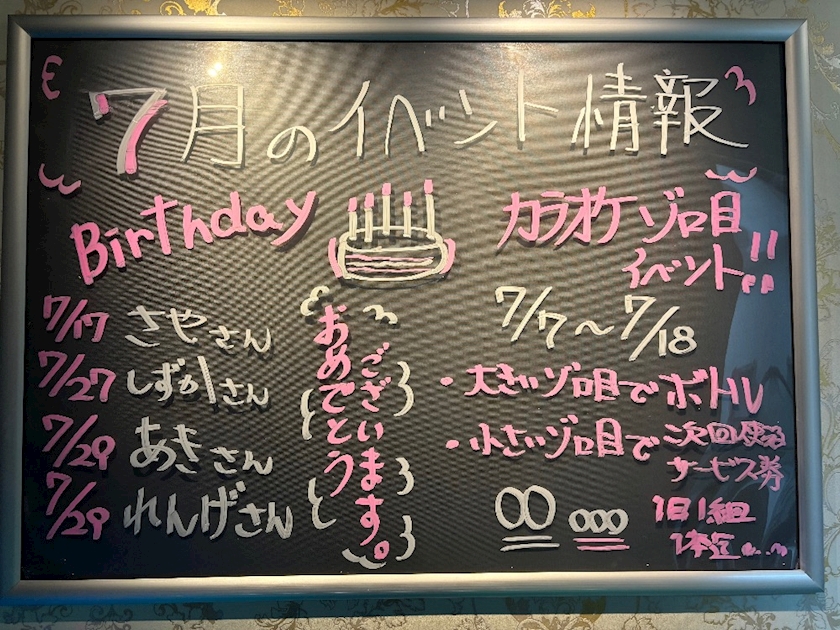 7月のイベント情報
Birthday
7/17 さやさん
7/27 しずかさん
7/29 あきさん
7/29 れんげさん
おめでとう
ございます。
カラオケ ゾロ目
イベント!!
7/7〜7/18
・大きいゾロ目でボトル
・小さいゾロ目で次回使える
サービス券
00 000
1日1組
1本迄